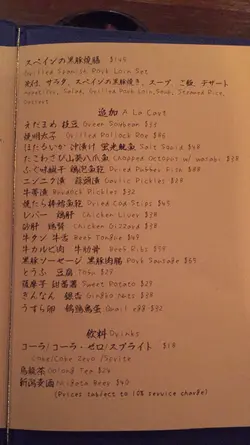 スペインの黒豚焼腸 $148
Grilled Spanish Pork Loin Set
先付、サラダ、スペインの黒豚焼き、スープ、ご飯、デザート
Appetizer, Salad, Grilled Pork Loin, Soup, Steamed Rice,
Dessert
追加 A La Cart
そだまめ 枝豆 Green Soybean $33
Grilled Pollock Roe $86
ほたるいか 沖漬け 螢光魷魚 Salt Squid $48
たこわさび 山葵八爪魚 Chopped Octopus w/ wasabi $38
Dried Puffer Fish $88
ニンニク漬 蒜頭漬 Garlic Pickles $38
牛蒡漬 Burdock Pickles $32
焼たら Dried Cod Slips $45
レバー 鶏肝 Chicken Liver $38
砂肝 鶏腎 Chicken Gizzard $38
牛タン 牛舌 Beef Tongue $49
牛カルビ肉 牛肋骨 Beef Ribs $59
黒豚ソーセージ 黒豚肉腸 Pork Sausage $65
とうふ 豆腐 Tofu $28
薩摩子 甜蕃薯 Sweet Potato $29
ぎんなん 銀杏 Gingko Nuts $38
うずら卵 鵪鶉鶏蛋 Quail e88 $32
飲料 Drinks
コーラ/コーラ・ゼロ/スプライト $18
Coke/Coke Zero /Sprite
烏龍茶 Oolong Tea $24
新潟麦酒 Niigata Beer $40
(Prices subject to 10% service charge)